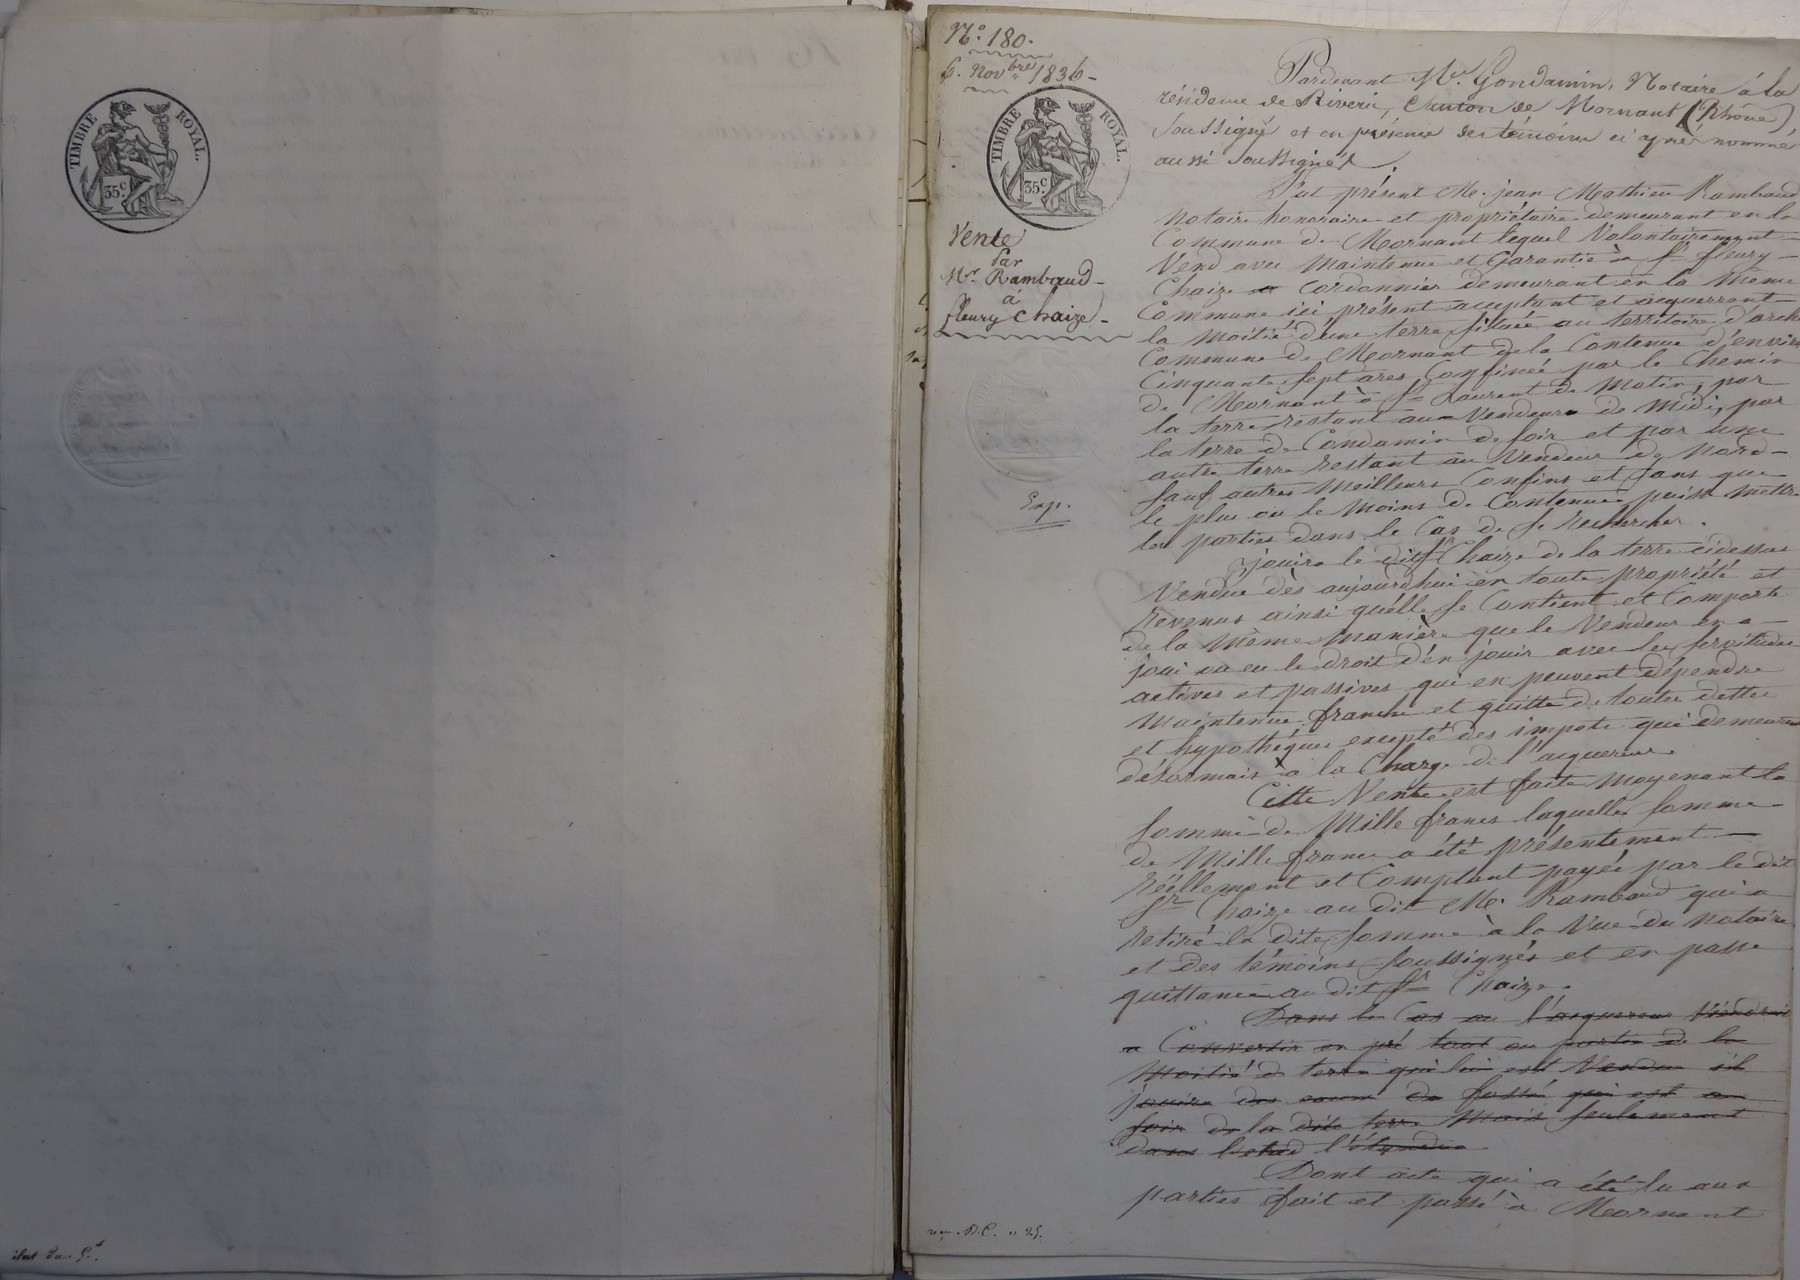 TIMBRE ROYAL.
35c.
N.o 180.
6. Novbre 1836-
TIMBRE ROYAL.
35c.
Vente
Par
Mr. Rambaud-
à
fleury Chaize-
Exp.
Pardevant Me. Gondamin, Notaire à la
résidence de Riverie, Canton de Mornant (Rhône)
Soussigné et en présence des témoins ci après nommés
aussi soussignés.
Fut présent Me. jean Mathieu Rambaud
Notaire honoraire et propriétaire demeurant en la
Commune de Mornant lequel Volontairement-
Vend avec Maintenue et Garantie à Sr. fleury-
Chaize Cordonnier demeurant en la même
Commune ici présent acceptant et acquerrant
la Moitié d'une terre située au territoire d'arche
Commune de Mornant de la Contenue d'environ
Cinquante sept ares Confinée par le Chemin
de Mornant à St Laurent de Matin; par
la terre restant au Vendeur de Midi, par
la terre de Condamin de soir et par une
autre terre restant au Vendeur de Nord-
Sauf autres Meilleurs Confins et sans que
le plus ou le moins de Contenue puisse mettre
les parties dans le Cas de se rechercher.
jouira le dit Sr Chaize de la terre cidessus
Vendue dès aujourdhui en toute propriété et
Revenus ainsi quélle se Contient et Comporte
de la Même Manière que le Vendeur en a-
joui ou eu le droit d'en jouir avec les servitudes
actives et passives qui en peuvent dépendre
Maintenue franche et quitte de toutes dettes
et hypothéques excepté des impots qui demeurent
désormais à la Charge de l'acquereur.
Cette Vente est faite Moyenant la
Somme de Mille francs laquelle somme-
de Mille francs a été présentement-
réellement et Comptant payée par le dit
Sr Chaize au dit Me. Rambaud qui a
retiré la dite somme à la Vue du Notaire
et des témoins soussignés et en passe
quittance au dit Sr Chaize.
Dans le Cas ou l'acquereur Viendrait
a Convertir en pré tout ou partie de la
Moitié de terre qui lui est Vendue il
jouira des eaux du fossé qui est au
soir de la dite terre Mais seulement
dans l'étendue
Dont acte qui a été lu aux
parties fait et passé à Mornant